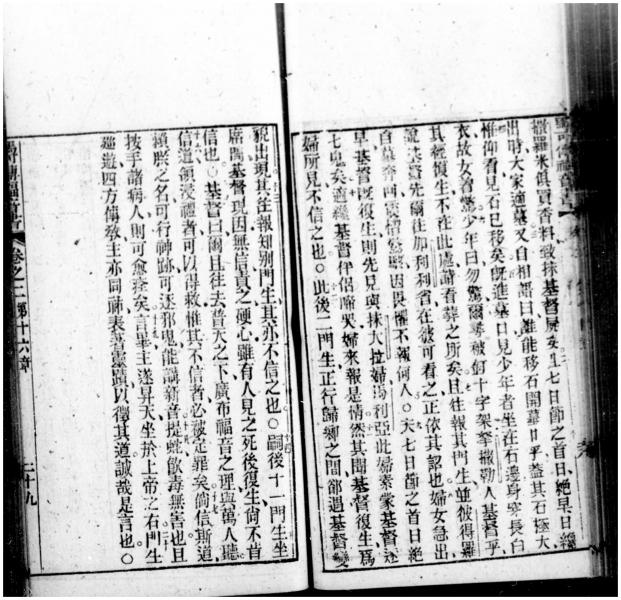 撒羅米俱買香料致抹基督屍矣七日節之首日絶早日纔
出時大家適墓又自相謂曰誰能移石開墓口乎蓋其石極大
惟仰看見石已移矣旣進墓口見少年者坐在石邊身穿長白
衣故女皆驚少年曰勿驚爾尋被釘十字架拿撒勒人基督乎
其經復生不在此處請看葬之所矣且往報其門生並彼得羅
說基督先爾往加利利省在彼可看之正依其詔也婦女急出
自墓奔
因畏懼不報何人〇夫七日節之首日絶
早基督旣復生則先見與抹大拉婦馬利亞此婦素蒙基督逐
七鬼矣適纔基督伴侶啼哭婦來報是情然其聞基督復生爲
婦所見不信之也〇此後二門生正行歸鄉之間卻遇基督變
貌出現其往報知別門生其亦不信之也〇嗣後十一門生坐
席間基督現因無信責之硬心雖有人見之死後復生尙不肯
信也〇基督曰爾且往去普天之下廣布福音之理與萬人聽
信道領浸禮者可以得救惟其不信者必被定罪矣倘信斯道
賴朕之名可行神跡可逐邪鬼能講新音提蛇飮毒無害也且
按手諸病人則可愈痊矣言畢主遂昇天坐於上帝之右門生
遊四方傳敎主亦同祐表著靈蹟以徵其道誠哉是言也〇
福音書
卷之二第十六章
二十九